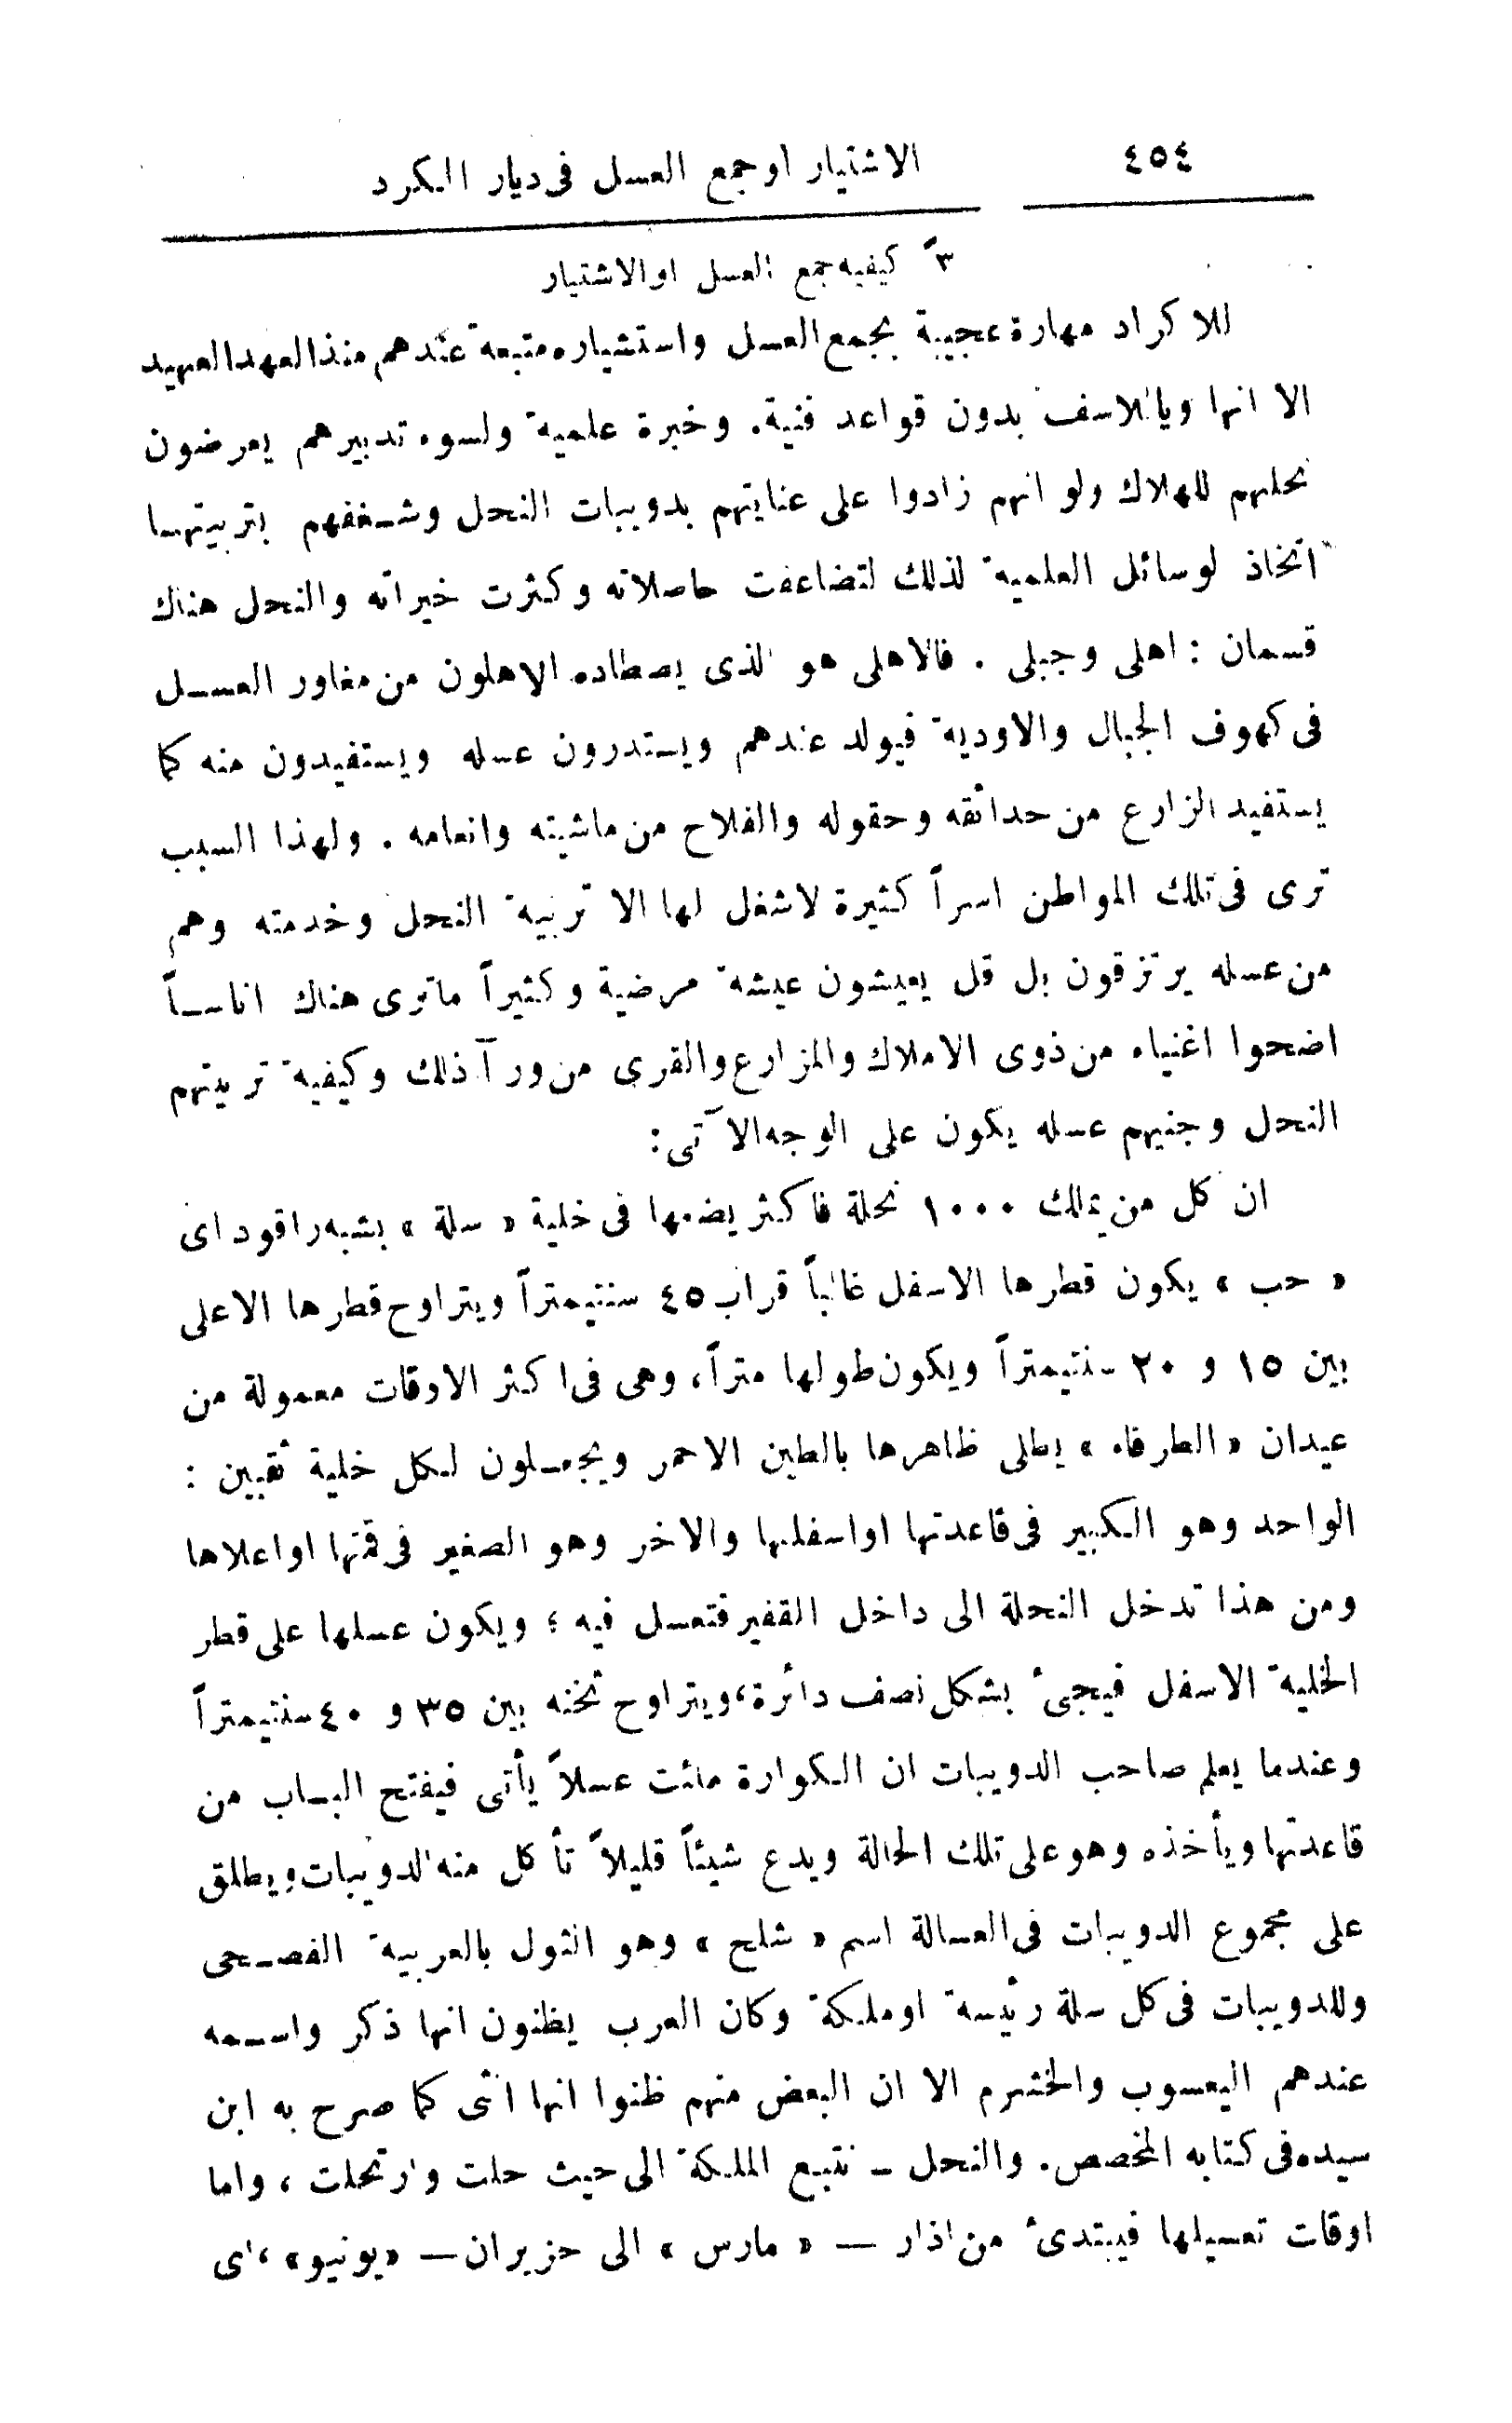 ٤٥٤ الاشتيار او جمع العسل فى ديار الكرد
٣ً كيفيه جمع العسل او الاشتيار
للاكراد مهارة عجيبة بجمع العسل واستشياره متبعة عندهم منذ العهد العهيد
الا انها ويا للاسف بدون قواعد فنية. وخبرة علمية ولسوء تدبيرهم يعرضون
نحلهم للهلاك ولو انهم زادوا على عنايتهم بدويبات النحل وشغفهم بتربيتها
اتخاذ لوسائل العلمية لذلك لتضاعفت حاصلاته وكثرت خيراته والنحل هناك
قسمان : اهلى وجبلى . فالاهلى هو الذى يصطاده الاهلون من مغاور العسل
فى كهوف الجبال والاودية فيولد عندهم ويستدرون عسله ويستفيدون منه كما
يستفيد الزارع من حدائقه وحقوله والفلاح من ماشيته وانعامه . ولهذا السبب
ترى فى تلك المواطن اسراً كثيرة لاشغل لها الا تربية النحل وخدمته وهم
من عسله يرتزقون بل قل يعيشون عيشة مرضية وكثيراً ماترى هناك اناساً
اضحوا اغنياء من ذوى الاملاك والمزارع والقرى من ورآ ذلك وكيفية تربيتهم
النحل وجنيهم عسله يكون على الوجه الآتى :
ان كل من يملك ١٠٠٠ نحلة فاكثر يضعها فى خلية « سلة » بشبه راقود اى
« حب » يكون قطرها الاسفل غالباً قراب ٤٥ سنتيمتراً ويتراوح قطرها الاعلى
بين ١٥ و ٢٠ سنتيمتراً ويكون طولها متراً، وهى فى اكثر الاوقات معمولة من
عيدان « الطرفاء » يطلى ظاهرها بالطين الاحمر ويجعلون لكل خلية ثقبين :
الواحد وهو الكبير فى قاعدتها اواسفلها والاخر وهو الصغير فى قمتها اواعلاها
ومن هذا تدخل النحلة الى داخل القفير فتعسل فيه ؛ ويكون عسلها على قطر
الخلية الاسفل فيجئ بشكل نصف دائرة، ويتراوح ثخنه بين ٣٥ و ٤٠ سنتيمتراً
وعندما يعلم صاحب الدويبات ان الكوارة ملئت عسلاً يأتى فيفتح الباب من
قاعدتها ويأخذه وهو على تلك الحالة ويدع شيئاً قليلاً تأكل منه الدويبات ويطلق
على مجموع الدويبات فى العسالة اسم « شلح » وهو الثول بالعربية الفصحى
وللدويبات فى كل سلة رئيسة اوملكة وكان العرب يظنون انها ذكر واسمه
عندهم اليعسوب والخشرم الا ان البعض منهم ظنوا انها انثى كما صرح به ابن
سيده فى كتابه المخصص. والنحل – نتبع الملكة الى حيث حلت وارتحلت ، واما
اوقات تعسيلها فيبتدئ من اذار — « مارس » الى حزيران — «يونيو» ، اى